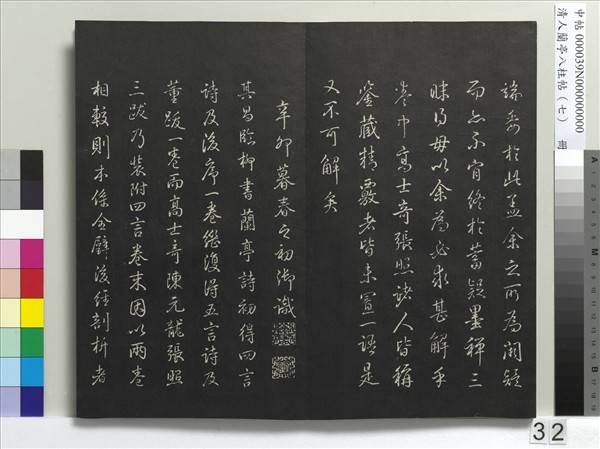 端委於此盖余之所為闕疑
而亦不肯終於蓄疑墨禪三
昧得毋以余為必求甚解乎
卷中高士奇張照諸人皆稱
鑒藏精覈者皆未置一語是
又不可解矣
辛卯暮春之初御識
其昌臨柳書蘭亭詩初得四言
詩及後序一卷繼復得五言詩及
董跋一卷而高士奇陳元龍張照
三跋乃裝附四言卷末因以兩卷
相較則本係全璧後經剖析者
中帖 000039N000000000 冊
清人蘭亭八柱帖（七）
32